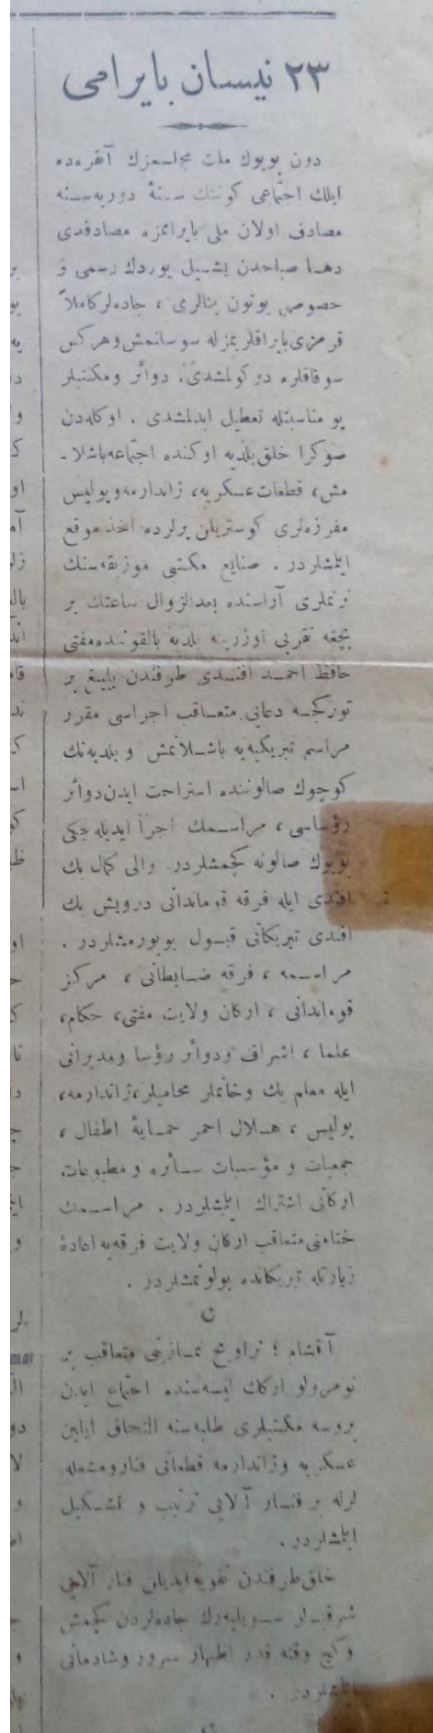 ٢٣ نيسان بايرامى
دون بويوك ملت مجلسمزك آنقره‌ده
ايلك اجتماعى كوننك سنهٔ دوريه‌سنه
مصادف اولان ملى بايرامزه مصادفدى
دها صباحدن يشيل يوردك رسمى و
خصوصى بوتون بنالرى ، جاده‌لر كاملاً
قرمزى بايراقلريمزله سوسلنمش وهركس
سوقاقلره دوكولمشدى . دوائر ومكتبلر
بو مناسبتله تعطيل ايدلمشدى . اوكله‌دن
صوكرا خلق بلديه اوكنده اجتماعه باشلا ـ
مش، قطعات عسكريه، ژاندارمه وپوليس
مفرزه‌لرى كوستريلن يرلرده اخذ موقع
ايتمشلردر . صنايع مكتبى موزيقه‌سنك
ترنملرى آراسنده بعدالزوال ساعتك بر
بچغه تقربى اوزرينه بلديه بالقوننده مفتى
حافظ احمد افندى طرفندن بليغ بر
توركجه دعايى متعاقب اجراسى مقرر
مراسم تبريكيه‌يه باشلانمش و بلديه‌نك
كوچوك صالوننده استراحت ايدن دوائر
رؤساسى ، مراسمك اجرا ايديله‌جكى
بويوك صالونه كچمشلردر. والى كمال بك
افندى ايله فرقه قوماندانى درويش بك
افندى تبريكاتى قبول بويورمشلردر .
مراسمه ، فرقه ضابطانى ، مركز
قوماندانى ، اركان ولايت مفتى، حكام،
علما ، اشراف ودوائر رؤسا ومديرانى
ايله معلم بك وخانملر محاميلر،ژاندارمه،
پوليس ، هلال احمر حمايهٔ اطفال ،
جمعيات و مؤسسات سائره و مطبوعات
اركانى اشتراك ايتمشلردر . مراسمك
ختامنى متعاقب اركان ولايت فرقه‌يه اعادهٔ
زيارتله تبريكاتده بولونمشلردر .
آقشام ؛ تراويح نمازينى متعاقب بر
نومرولو اركك ليسه‌سنده اجتماع ايدن
بروسه مكتبلرى طلبه‌سنه التحاق ايلين
عسكريه وژاندارمه قطعاتى فنار ومشعله
لرله بر فنار آلايى ترتيب و تشكيل
ايتمشلردر .
خلق طرفندن تقويه ايديلن فنار آلايى
شرقيلر سويليه‌رك جاده‌لردن كچمش
وكيج وقته قدر اظهار سرور وشادمانى
ايتمشلردر .